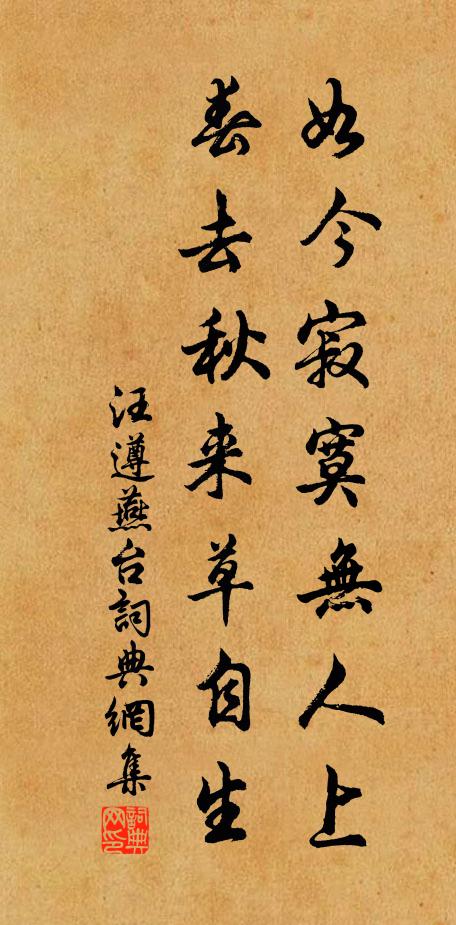 如今寂寞無人上
春去秋来草自生
汪遵燕台詞典網集
詞典网印